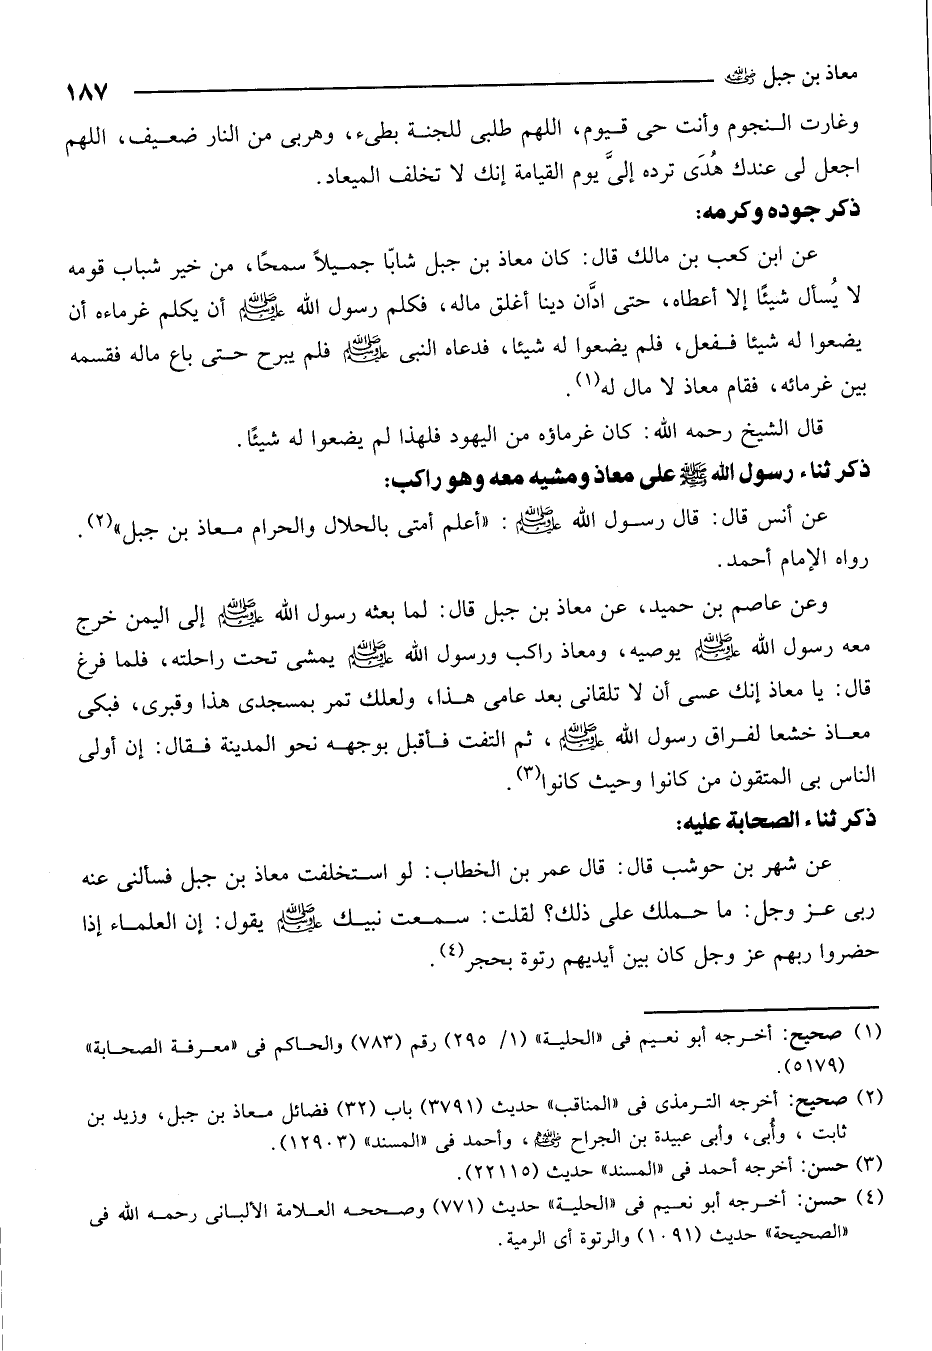 معاذ بن جبل رضي الله عنه ١٨٧
وغارت النجوم وأنت حى قيوم، اللهم طلبى للجنة بطىء، وهربى من النار ضعيف، اللهم
اجعل لى عندك هُدَى ترده إلىَّ يوم القيامة إنك لا تخلف الميعاد.
ذكر جوده وكرمه:
عن ابن كعب بن مالك قال: كان معاذ بن جبل شابًا جميلاً سمحًا، من خير شباب قومه
لا يُسأل شيئًا إلا أعطاه، حتى ادَّان دينا أغلق ماله، فكلم رسول الله ﷺ أن يكلم غرماءه أن
يضعوا له شيئا ففعل، فلم يضعوا له شيئا، فدعاه النبى ﷺ فلم يبرح حتى باع ماله فقسمه
بين غرمائه، فقام معاذ لا مال له(١).
قال الشيخ رحمه الله: كان غرماؤه من اليهود فلهذا لم يضعوا له شيئًا.
ذكر ثناء رسول الله ﷺ على معاذ ومشيه معه وهو راكب:
عن أنس قال: قال رسول الله ﷺ: «أعلم أمتى بالحلال والحرام معاذ بن جبل»(٢).
رواه الإمام أحمد.
وعن عاصم بن حميد، عن معاذ بن جبل قال: لما بعثه رسول الله ﷺ إلى اليمن خرج
معه رسول الله ﷺ يوصيه، ومعاذ راكب ورسول الله ﷺ يمشى تحت راحلته، فلما فرغ
قال: يا معاذ إنك عسى أن لا تلقانى بعد عامى هذا، ولعلك تمر بمسجدى هذا وقبرى، فبكى
معاذ خشعا لفراق رسول الله ﷺ، ثم التفت فأقبل بوجهه نحو المدينة فقال: إن أولى
الناس بى المتقون من كانوا وحيث كانوا(٣).
ذكر ثناء الصحابة عليه:
عن شهر بن حوشب قال: قال عمر بن الخطاب: لو استخلفت معاذ بن جبل فسألنى عنه
ربى عز وجل: ما حملك على ذلك؟ لقلت: سمعت نبيك ﷺ يقول: إن العلماء إذا
حضروا ربهم عز وجل كان بين أيديهم رتوة بحجر(٤).
(١) صحيح: أخرجه أبو نعيم فى «الحلية» (١/ ٢٩٥) رقم (٧٨٣) والحاكم فى «معرفة الصحابة»
(٥١٧٩).
(٢) صحيح: أخرجه الترمذى فى «المناقب» حديث (٣٧٩١) باب (٣٢) فضائل معاذ بن جبل، وزيد بن
ثابت ، وأُبى، وأبى عبيدة بن الجراح رضي الله عنهم، وأحمد فى «المسند» (١٢٩٠٣).
(٣) حسن: أخرجه أحمد فى «المسند» حديث (٢٢١١٥).
(٤) حسن: أخرجه أبو نعيم فى «الحلية» حديث (٧٧١) وصححه العلامة الألبانى رحمه الله فى
«الصحيحة» حديث (١٠٩١) والرتوة أى الرمية.